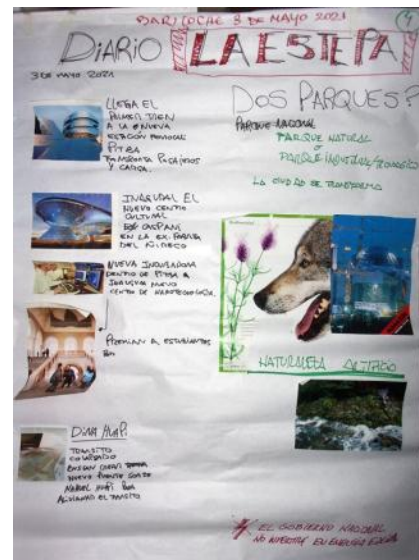 BARILOCHE 8 DE MAYO 2021
DIARIO LA ESTEPA
3 DE MAYO 2021
LLEGA EL
PRIMER TREN
A LA NUEVA
ESTACIÓN
PITBA
TRANSPORTA PASAJEROS
Y CARGA.
INAUGURAN EL
NUEVO CENTRO
CULTURAL
EN LA EX
DEL ÑIRECO
NUEVA INCUBADORA
DENTRO DE PITBA
NUEVO
CENTRO DE NANOTECNOLOGÍA.
PREMIAN A ESTUDIANTES
DINA HUAPI
TRANSITO
COLAPSADO
NUEVO PUENTE SOBRE
NAHUEL HUAPI
EL TRANSITO
DOS PARQUES?
PARQUE NACIONAL
PARQUE NATURAL
O
PARQUE INDUSTRIAL/TECNOLÓGICO
LA CIUDAD SE TRANSFORMA
NATURALEZA ARTIFICIO
EL GOBIERNO NACIONAL
NO INVERTIRÁ EN ENERGÍA EÓLICA